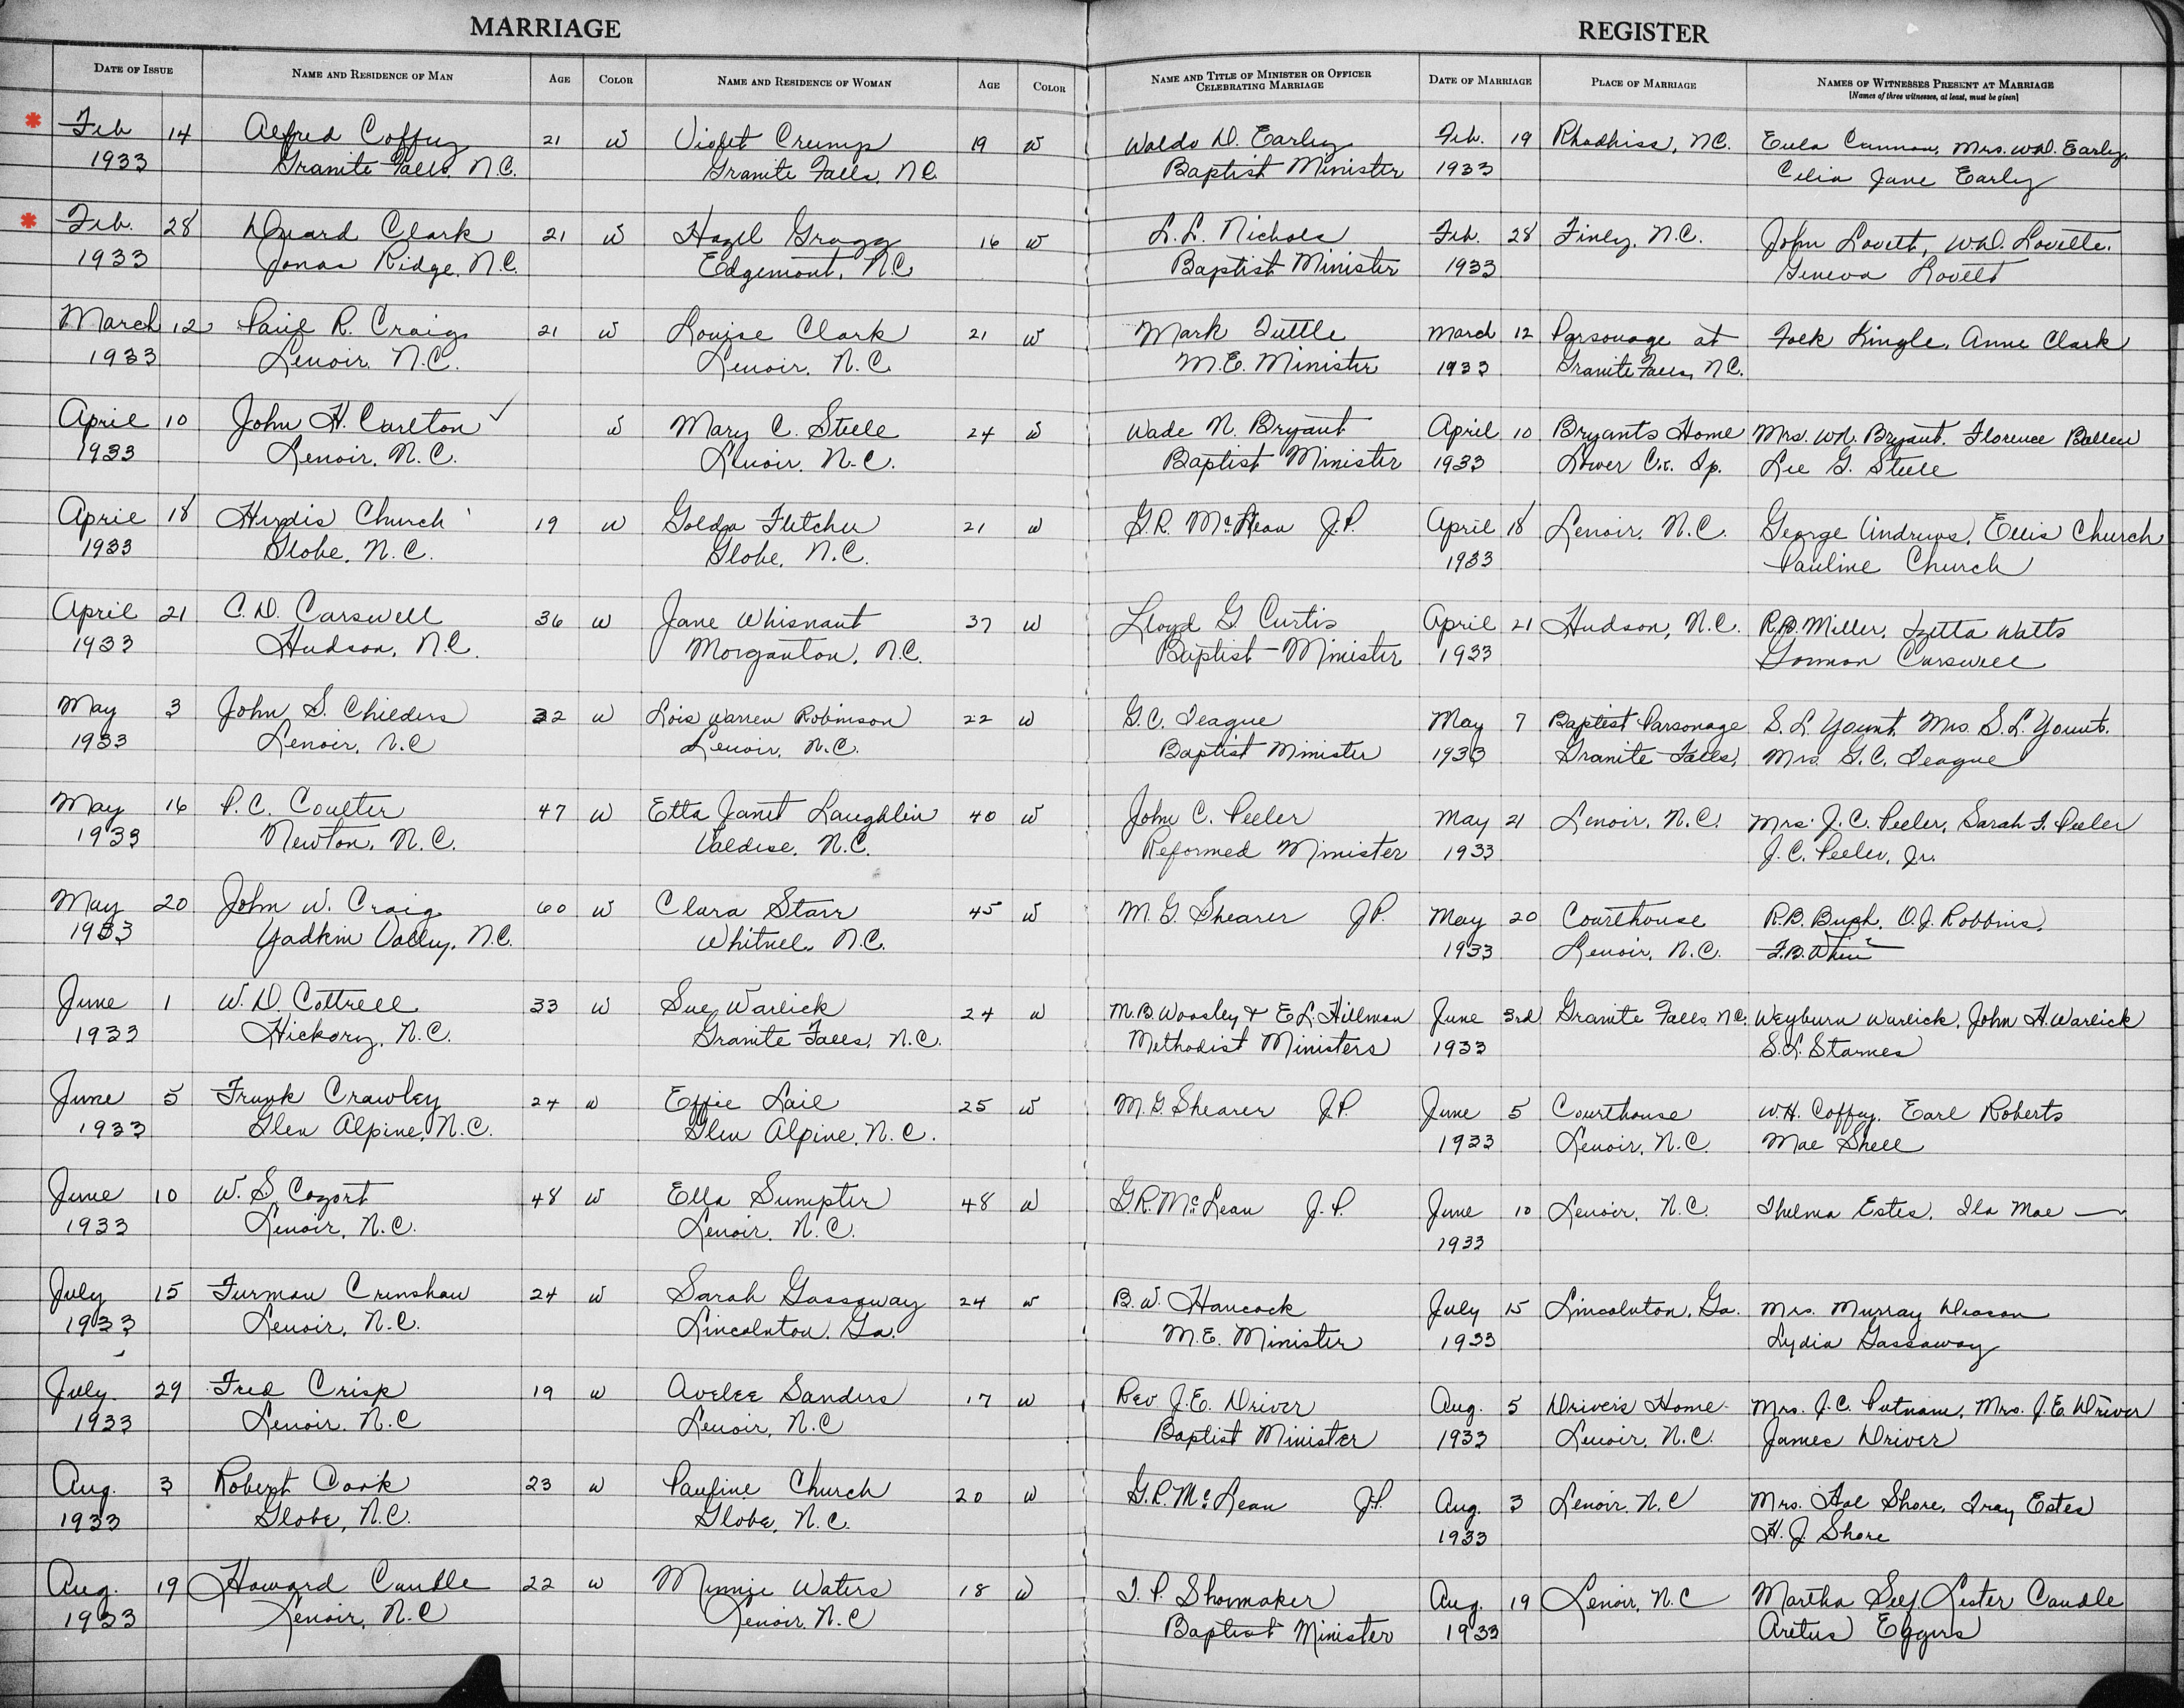 MARRIAGE REGISTER
DATE OF ISSUE NAME AND RESIDENCE OF MAN AGE COLOR NAME AND RESIDENCE OF WOMAN AGE COLOR NAME AND TITLE OF MINISTER OR OFFICER CELEBRATING MARRIAGE DATE OF MARRIAGE PLACE OF MARRIAGE NAMES OF WITNESSES PRESENT AT MARRIAGE
[Names of three witnesses, at least, must be given]
Feb 14 Alfred Coffey 21 W Violet Crump 19 W Waldo D. Early Feb. 19 Rhodhiss, N.C. Eula Cannon, Mrs. W.D. Early,
1933 Granite Falls, N.C. Granite Falls, N.C. Baptist Minister 1933 Celia Jane Early
Feb. 28 Clark 21 W Hazel Gragg 16 W L. L. Nichols Feb. 28 Finley, N.C. John Lovett, W.D. Lovette,
1933 Jonas Ridge, N.C. Edgemont, N.C. Baptist Minister 1933 Geneva Lovett
March 12 Paul R. Craig 21 W Louise Clark 21 W Mark Tuttle March 12 Parsonage at Kingle, Anne Clark
1933 Lenoir, N.C. Lenoir, N.C. M.E. Minister 1933 Granite Falls, N.C.
April 10 John H. Carlton ✓ W Mary C. Steele 24 W Wade N. Bryant April 10 Bryants Home Mrs. W.N. Bryant, Florence
1933 Lenoir, N.C. Lenoir, N.C. Baptist Minister 1933 Lower Cr. Tp. Lee G. Steele
April 18 Church 19 W Golda Fletcher 21 W G.R. McLean J.P. April 18 Lenoir, N.C. George Andrews, Ellis Church
1933 Globe, N.C. Globe, N.C. 1933 Pauline Church
April 21 C.D. Carswell 36 W Jane Whisnant 37 W Lloyd G Curtis April 21 Hudson, N.C. R.B. Miller, Watts
1933 Hudson, N.C. Morganton, N.C. Baptist-Minister 1933 Gorman Carswell
May 3 John S. Childers 22 W Lois Warren Robinson 22 W G.C. Teague May 7 Baptist Parsonage S. L. Yount, Mrs. S.L. Yount,
1933 Lenoir, N.C Lenoir, N.C. Baptist Minister 1933 Granite Falls, Mrs. G.C. Teague
May 16 P.C. Coulter 47 W Etta Janet Laughlin 40 W John C. Peeler May 21 Lenoir, N.C. Mrs. J.C. Peeler, Sarah F. Peeler
1933 Newton, N.C. Valdese, N.C. Reformed Minister 1933 J.C. Peeler, Jr.
May 20 John W. Craig 60 W Clara Starr 45 W M.G. Shearer J.P. May 20 Courthouse R.B. Bush, O.J. Robbins,
1933 Yadkin Valley, N.C. Whitnel, N.C. 1933 Lenoir, N.C.
June 1 W.D. Cottrell 33 W Sue Warlick 24 W M.B. Woosley & E.L. Hillman June 3rd Granite Falls, N.C. Weyburn Warlick, John H. Warlick
1933 Hickory, N.C. Granite Falls, N.C. Methodist Ministers 1933 S.L. Starnes
June 5 Frank Crawley 24 W Effie Lail 25 W M.G. Shearer J.P. June 5 Courthouse W.H. Coffey, Earl Roberts
1933 Glen Alpine, N.C. Glen Alpine, N.C. 1933 Lenoir, N.C. Mae Shell
June 10 W. S. Cozort 48 W Ella Sumpter 48 W G.R. McLean J.P. June 10 Lenoir, N.C. Thelma Estes, Ila Mae —
1933 Lenoir, N.C. Lenoir, N.C. 1933
July 15 Furman Crenshaw 24 W Sarah Gassaway 24 W B.W. Hancock July 15 Lincolnton, Ga. Mrs. Murray Deason
1933 Lenoir, N.C. Lincolnton, Ga. M.E. Minister 1933 Lydia Gassaway
July 29 Fred Crisp 19 W Avelee Sanders 17 W Rev J.E. Driver Aug. 5 Driver's Home Mrs. J.C. Putnam, Mrs. J.E. Driver
1933 Lenoir, N.C Lenoir, N.C Baptist Minister 1933 Lenoir, N.C. James Driver
Aug. 3 Robert Cook 23 W Pauline Church 20 W G.R. McLean J.P. Aug. 3 Lenoir, N.C Mrs. Hal Shore, Troy Estes
1933 Globe, N.C. Globe, N.C. 1933 H.J. Shore
Aug. 19 Howard Caudle 22 W Minnie Waters 18 W T.P. Shoemaker Aug. 19 Lenoir, N.C Martha Self, Lester Caudle
1933 Lenoir, N.C Lenoir, N.C Baptist Minister 1933 Aretus Eggers